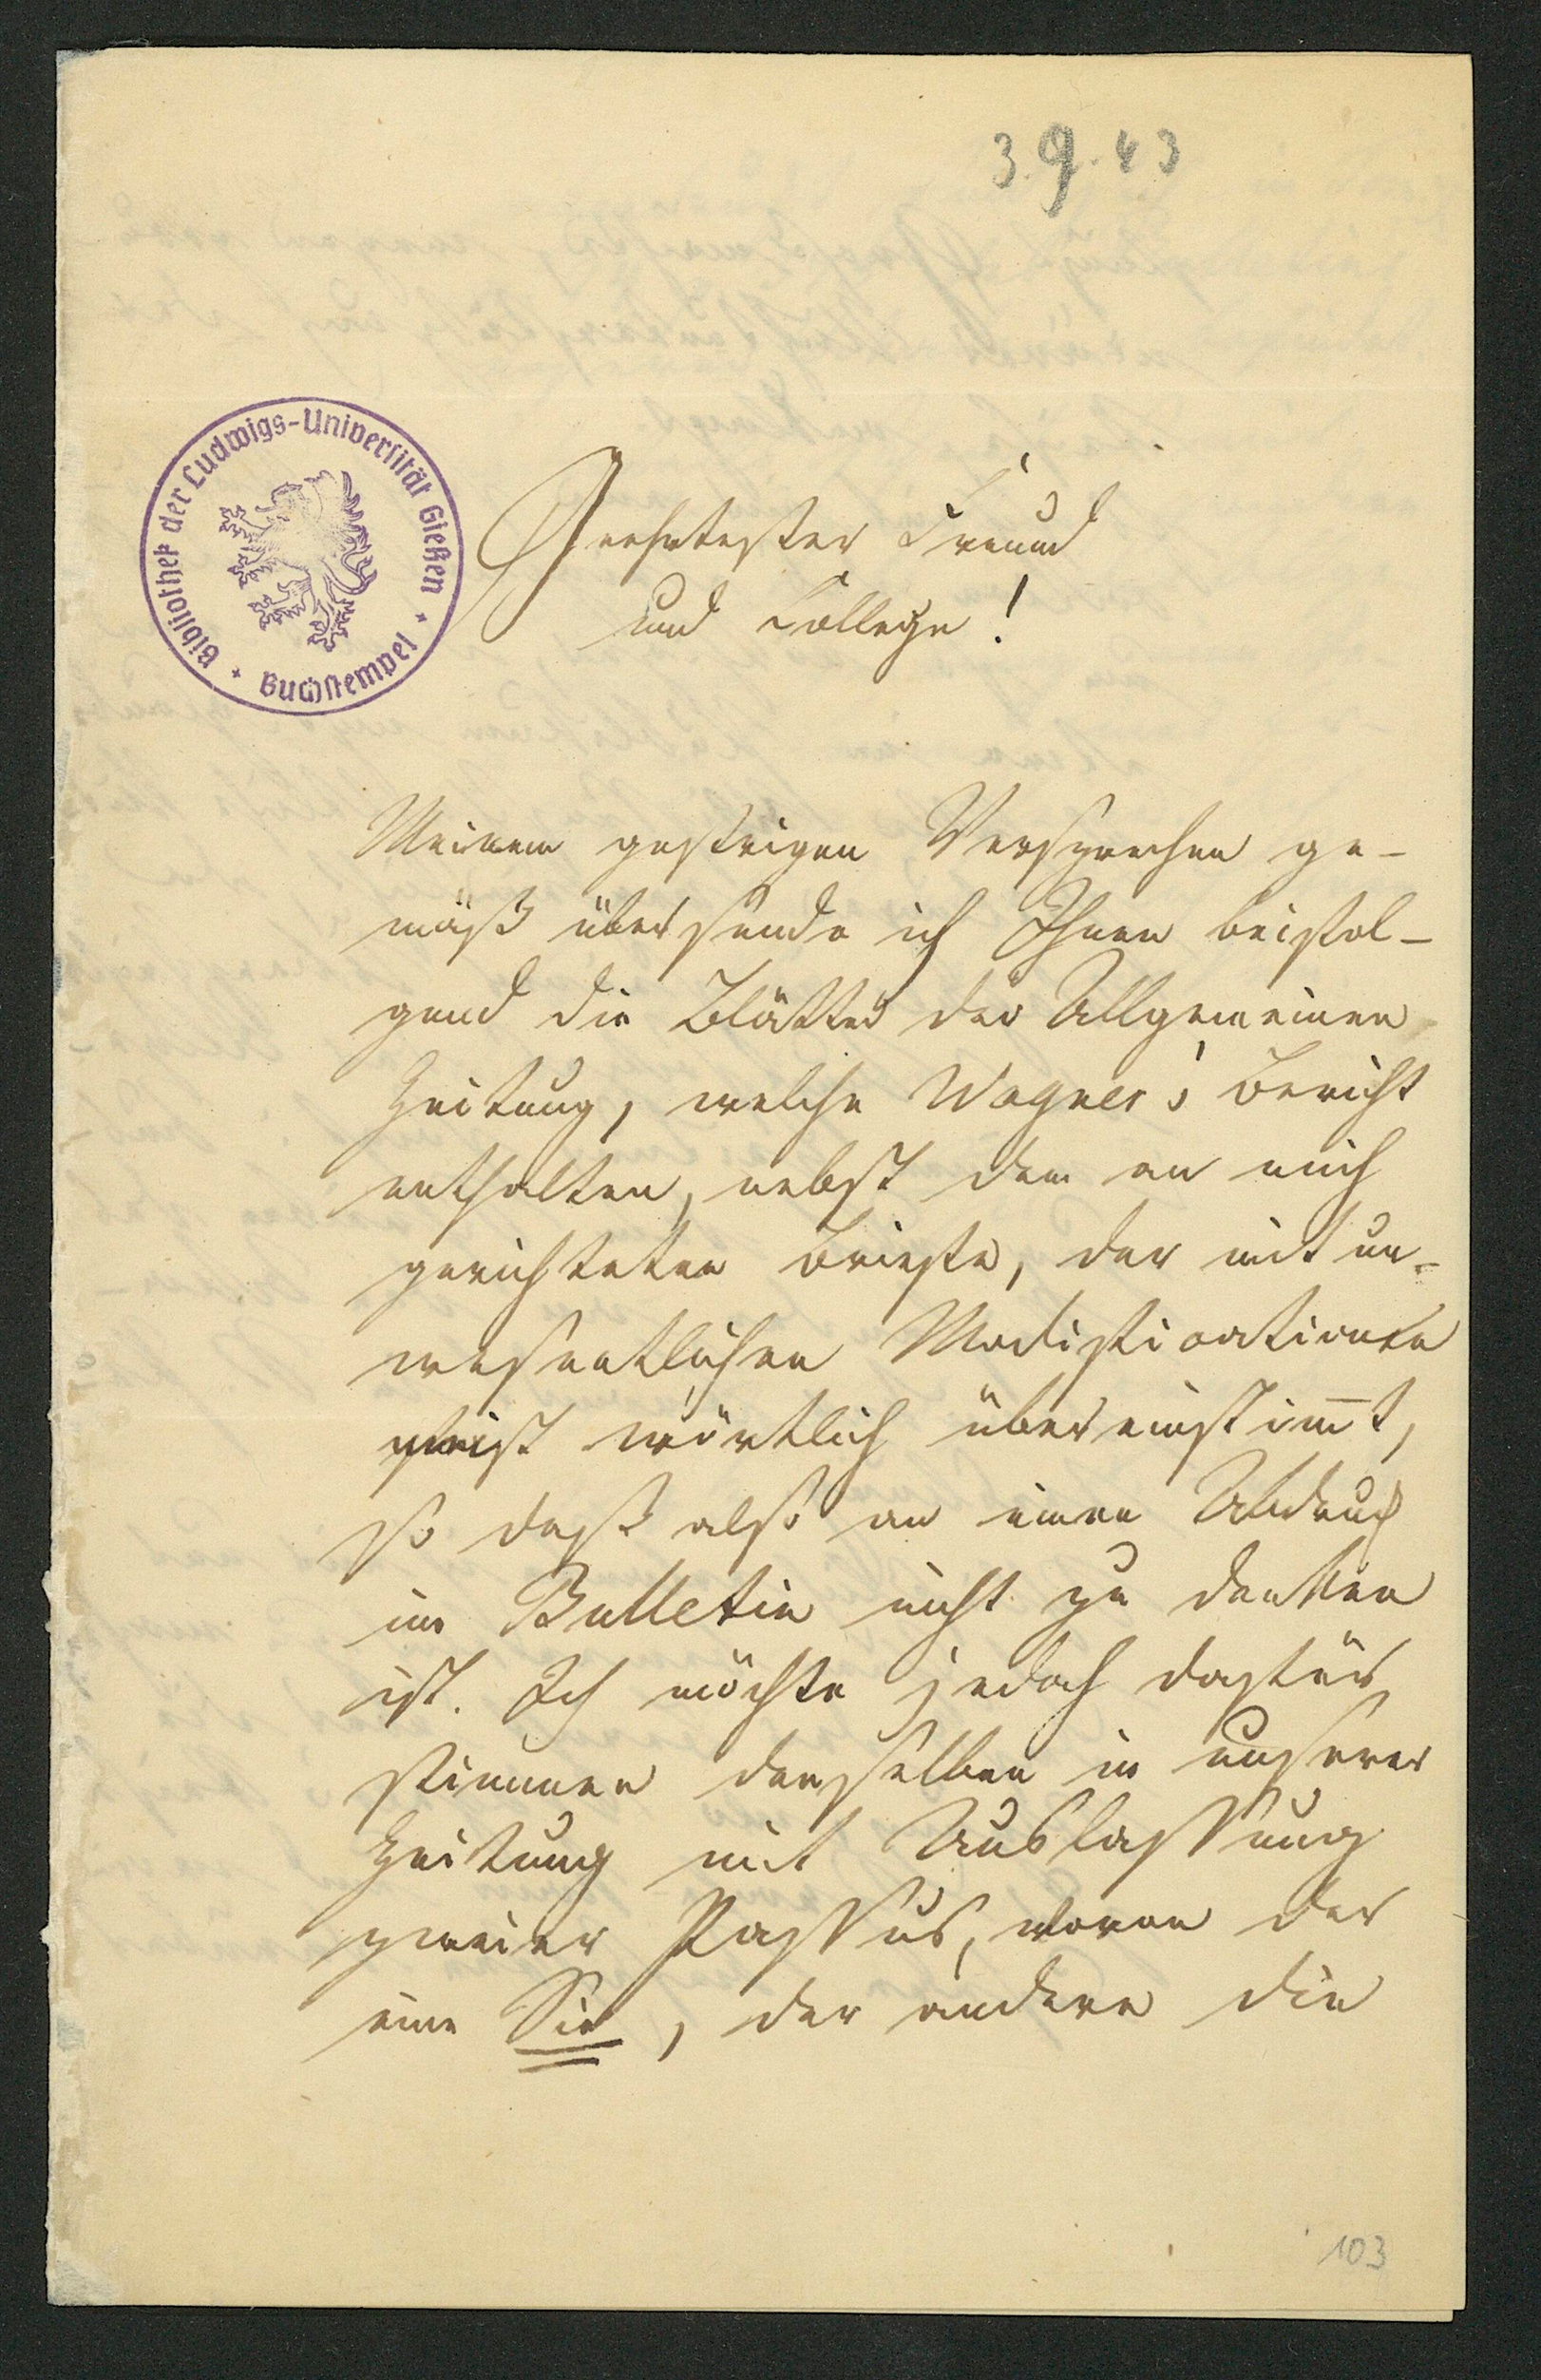 3.9.43
Bibliothek der Ludwigs-Universität Gießen
Buchstempel
Geehrtester Freund
und College!
Meinem gestrigen Versprechen ge-
mäß übersende ich Ihnen beifol-
gend die Blätter der Allgemeinen
Zeitung, welche Wagner's Bericht
enthalten, nebst dem an mich
gerichteten Briefe, der mit un-
wesentlichen Modificationen
meist wörtlich übereinstim̅t,
so daß also an einen Abdruck
im Bulletin nicht zu denken
ist. Ich möchte jedoch dafür
stimmen denselben in unserer
Zeitung mit Auslassung
zweier Passus, wovon der
eine Sie, der andere die
103